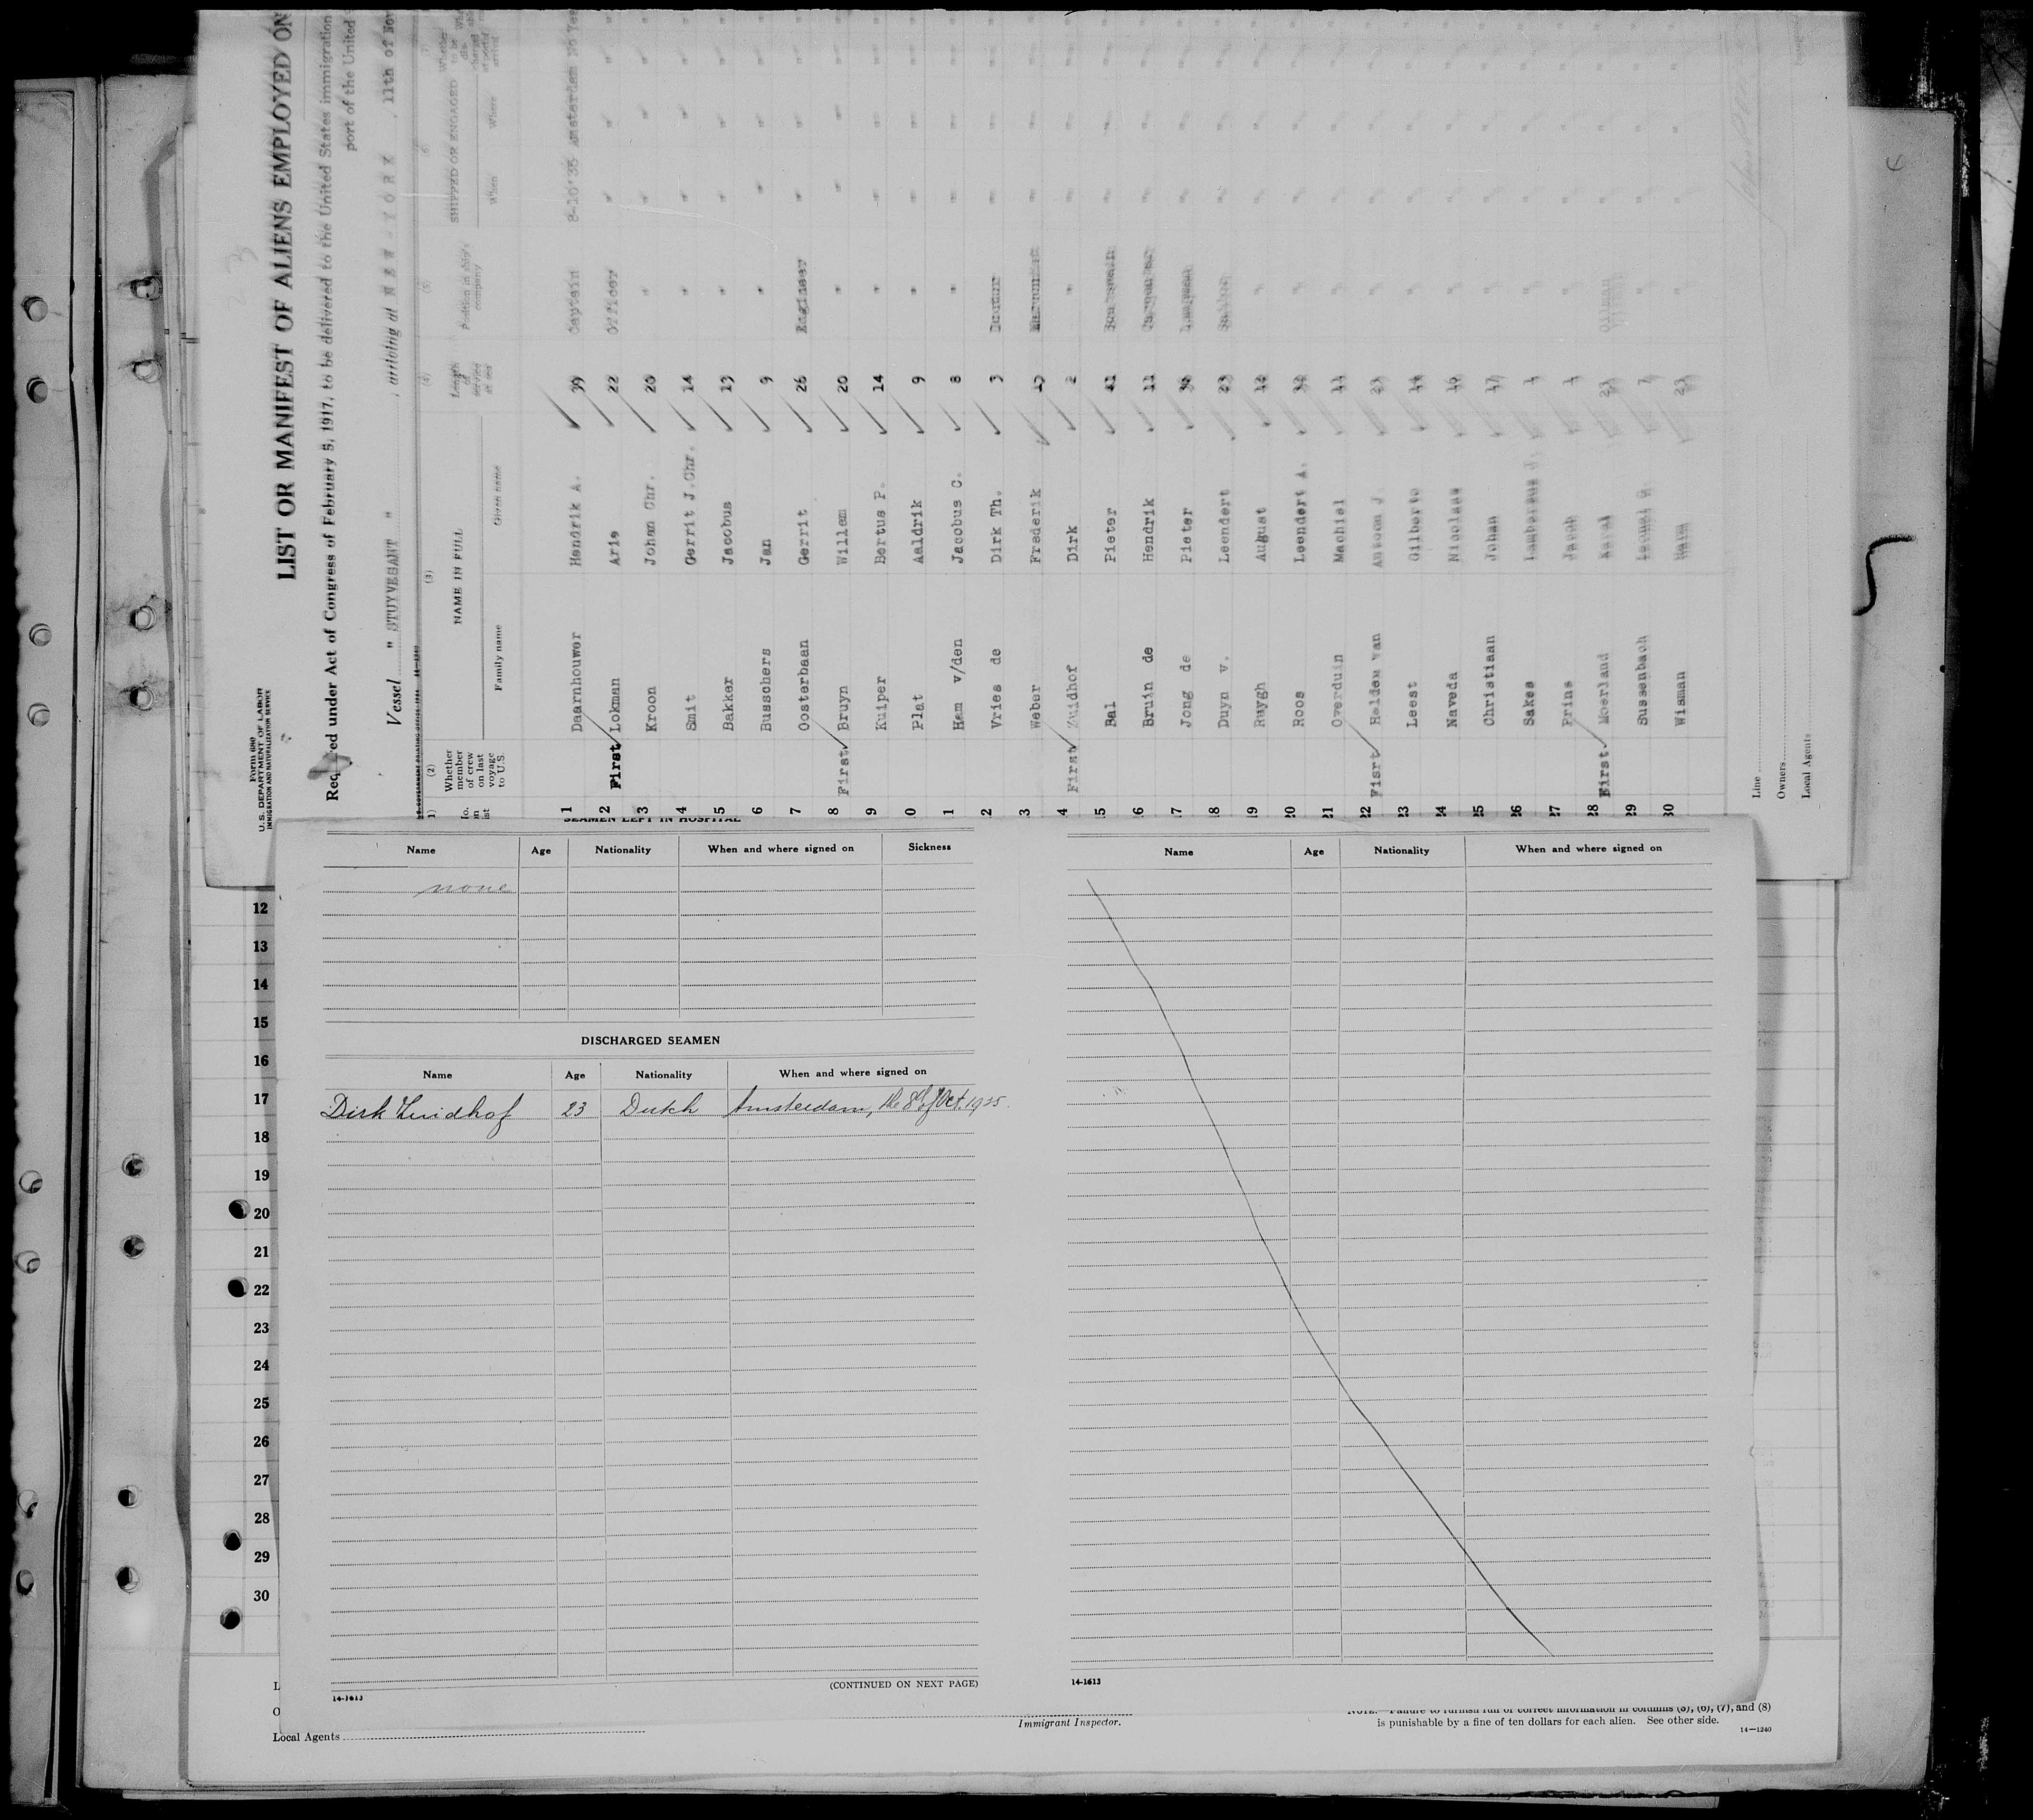 Form 680
U.S. DEPARTMENT OF LABOR
IMMIGRATION AND NATURALIZATION SERVICE
LIST OR MANIFEST OF ALIENS EMPLOYED ON
Required under Act of Congress of February 5, 1917, to be delivered to the United States immigration
port of the United
Vessel " STUYVESANT " , arriving at NEW-YORK , 11th of Nov
(2) (3) (4) (5) (6) (7)
Whether member of crew on last voyage to U.S. NAME IN FULL Length of service at sea Position in ship's company SHIPPED OR ENGAGED Whether to be discharged at port of arrival
Family name Given name When Where
1 Daarnhouwer Hendrik A. 39 Captain 8-10'35 Amsterdam No Yes
2 First Lokman Arie 22 Officer " "
3 Kroon Johan Chr. 20 " " "
4 Smit Gerrit J.Chr. 14 " " "
5 Bakker Jacobus 13 " " "
6 Busschers Jan 9 " " "
7 Oosterbaan Gerrit 26 Engineer " "
8 First Bruyn Willem 20 " " "
9 Kuiper Bertus P. 14 " " "
0 Plat Aaldrik 9 " " "
1 Ham v/den Jacobus C. 8 " " "
2 Vries de Dirk Th. 3 " "
3 Weber Frederik " "
4 First Zuidhof Dirk 2 " " "
5 Bal Pieter 41 Boatswain " "
6 Bruin de Hendrik 11 Carpenter " "
7 Jong de Pieter Lampman " "
18 Duyn v. Leendert 23 Sailor " "
19 Ruygh August 12 " " "
20 Roos Leendert A. 32 " " "
21 Overduin Machiel 11 " " "
22 Fisrt Helden van Antoon J. 23 " " "
23 Leest Gilberto 14 " " "
24 Naveda Nicolaas 16 " " "
25 Christiaan Johan 17 " " "
26 Sakes Lambertus J. " " "
27 Prins Jacob " " "
28 First Moerland Karel 27 Oilman " "
29 Sussenbach " " "
30 Wisman Harm 23 " " "
Line
Owners
Local Agents
SEAMEN LEFT IN HOSPITAL
Name Age Nationality When and where signed on Sickness
none
DISCHARGED SEAMEN
Name Age Nationality When and where signed on
Dirk Zuidhof 23 Dutch Amsterdam, the 8th of Oct. 1935.
(CONTINUED ON NEXT PAGE)
14-1613
Name Age Nationality When and where signed on
14-1613
12
13
14
15
16
17
18
19
20
21
22
23
24
25
26
27
28
29
30
L
O
Local Agents
Immigrant Inspector.
NOTE.—Failure to furnish full or correct information in columns (3), (6), (7), and (8)
is punishable by a fine of ten dollars for each alien. See other side.
14—1240